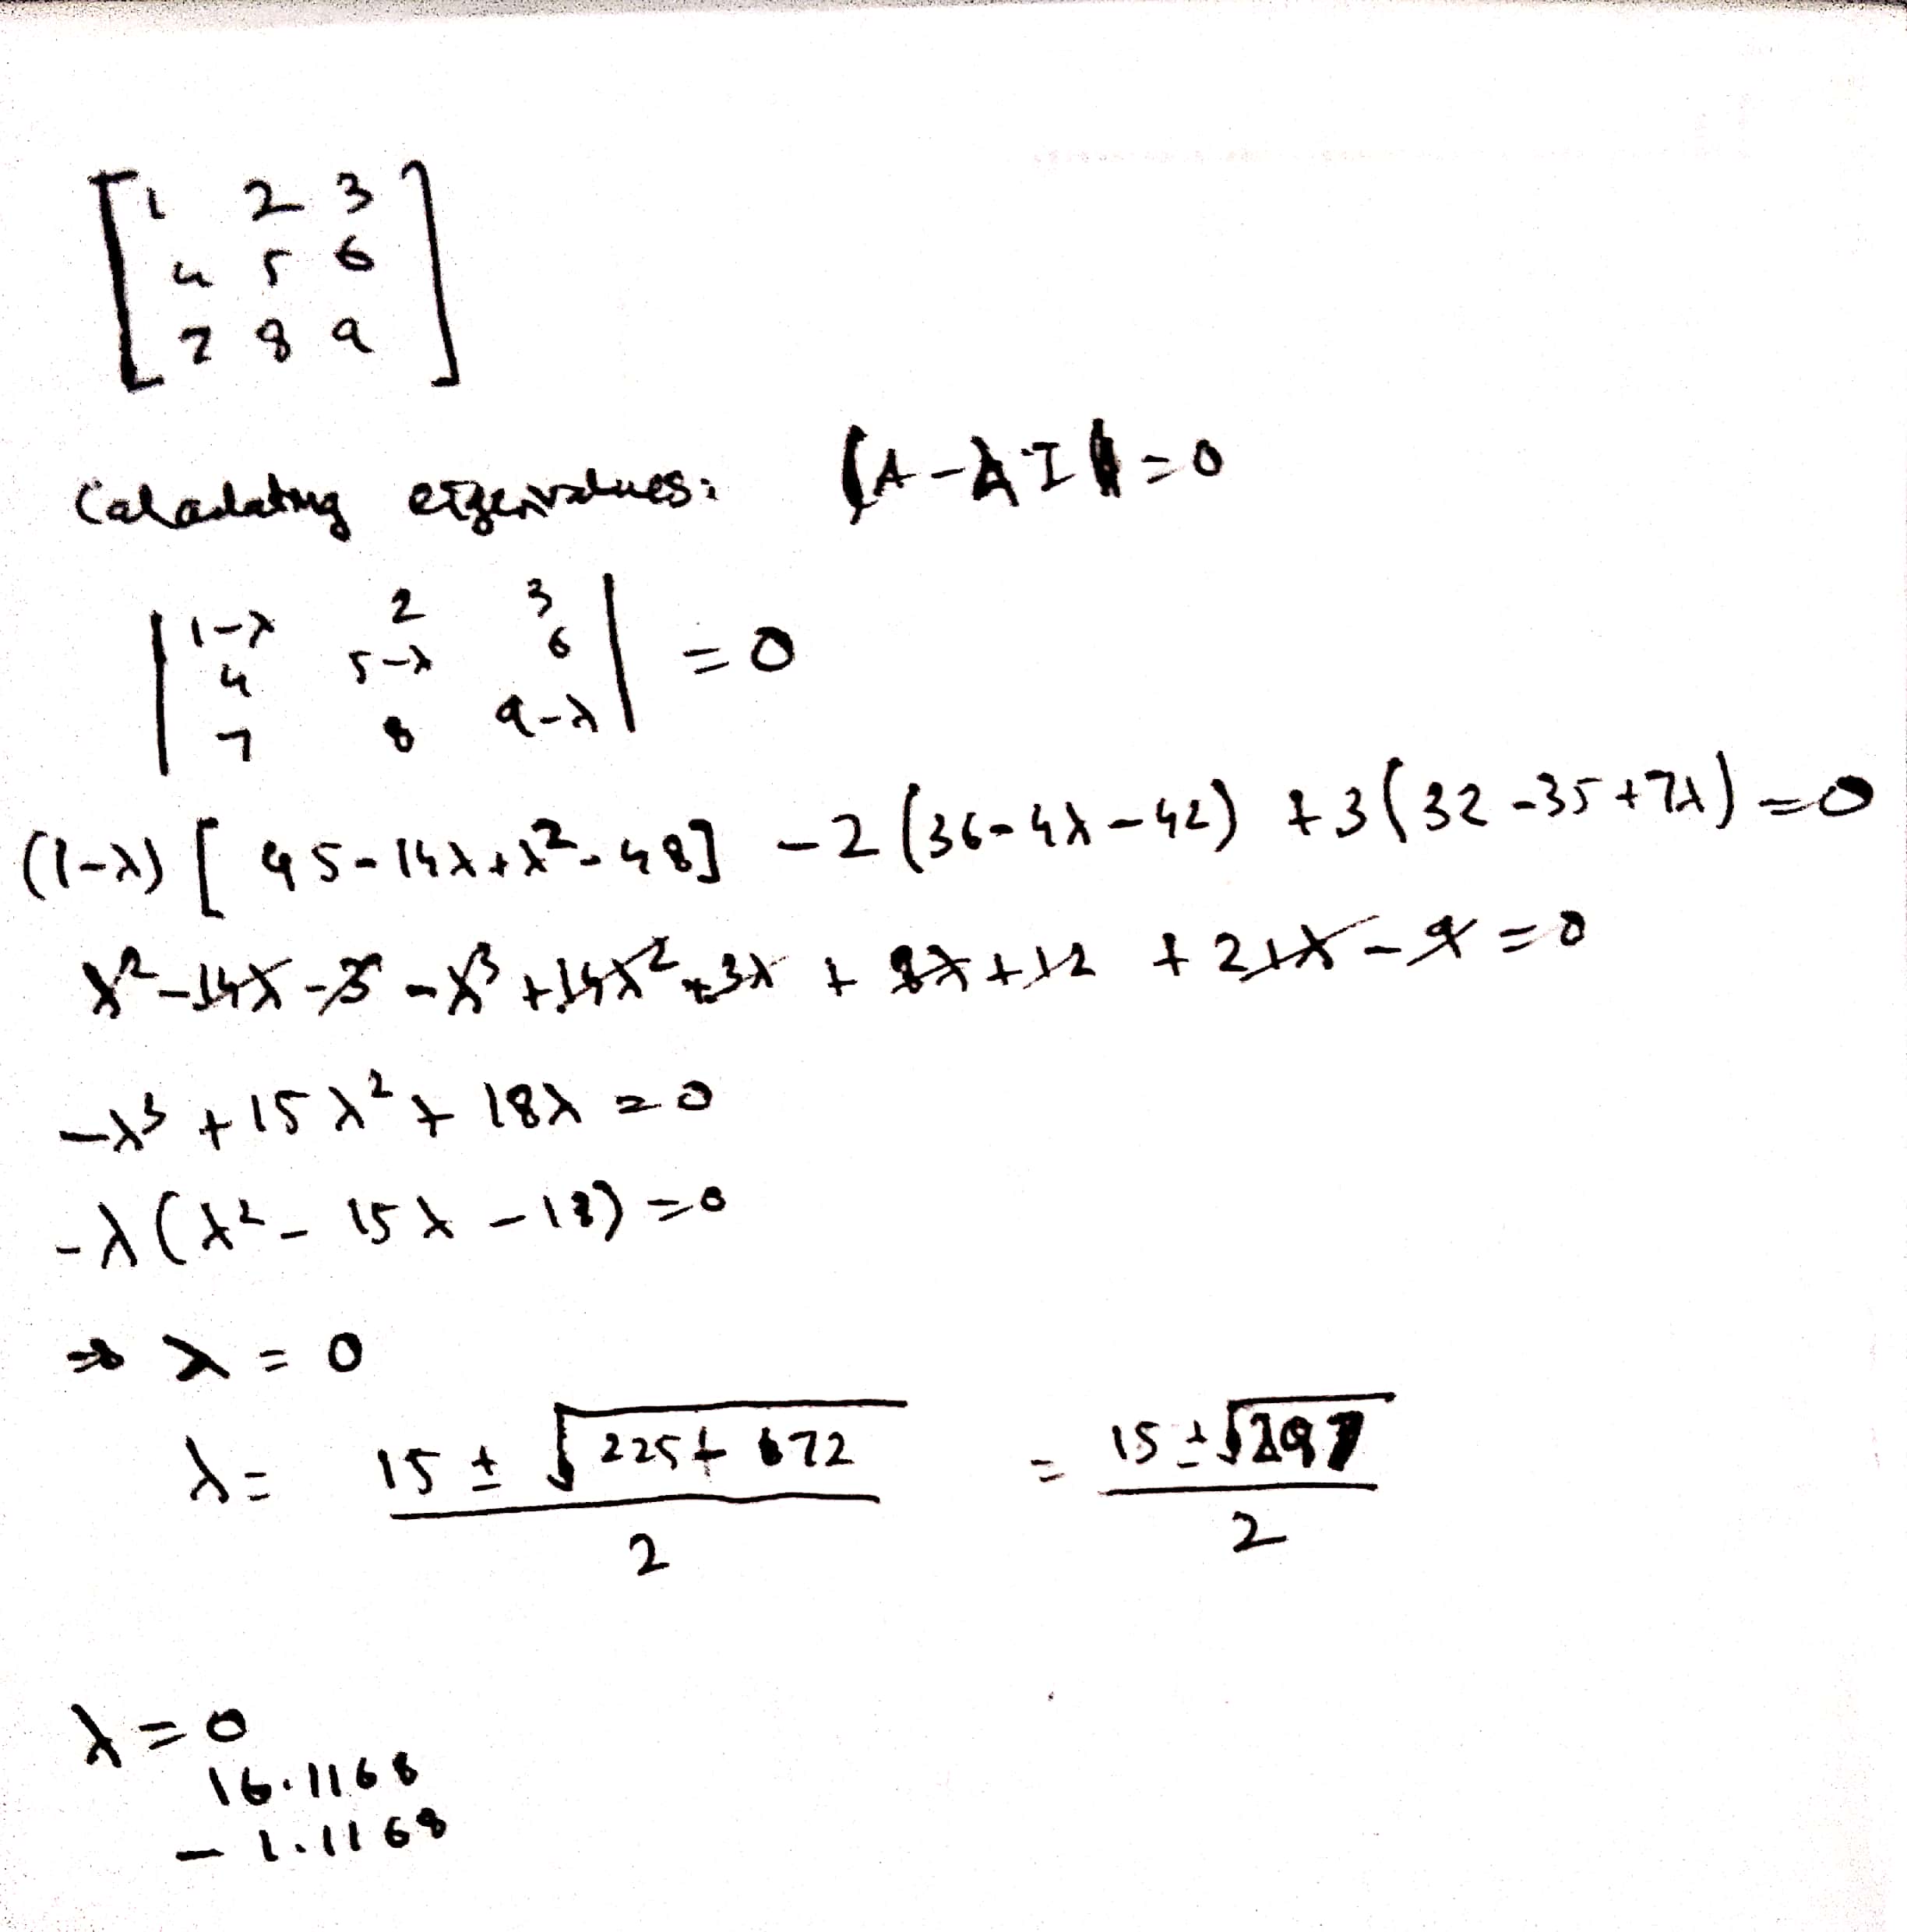 [1 2 3
4 5 6
7 8 9]
Calculating eigenvalues: |A-λI|=0
|1-λ 2 3
4 5-λ 6
7 8 9-λ| =0
(1-λ) [45-14λ+λ²-48] -2(36-4λ-42) +3(32-35+7λ)=0
λ²-14λ-3-λ³+14λ²+3λ+8λ+12+21λ-9=0
-λ³+15λ²+18λ=0
-λ(λ²-15λ-18)=0
⇒ λ=0
λ= (15±√(225+672))/2 = (15±√297)/2
λ=0
16.1168
-1.1168